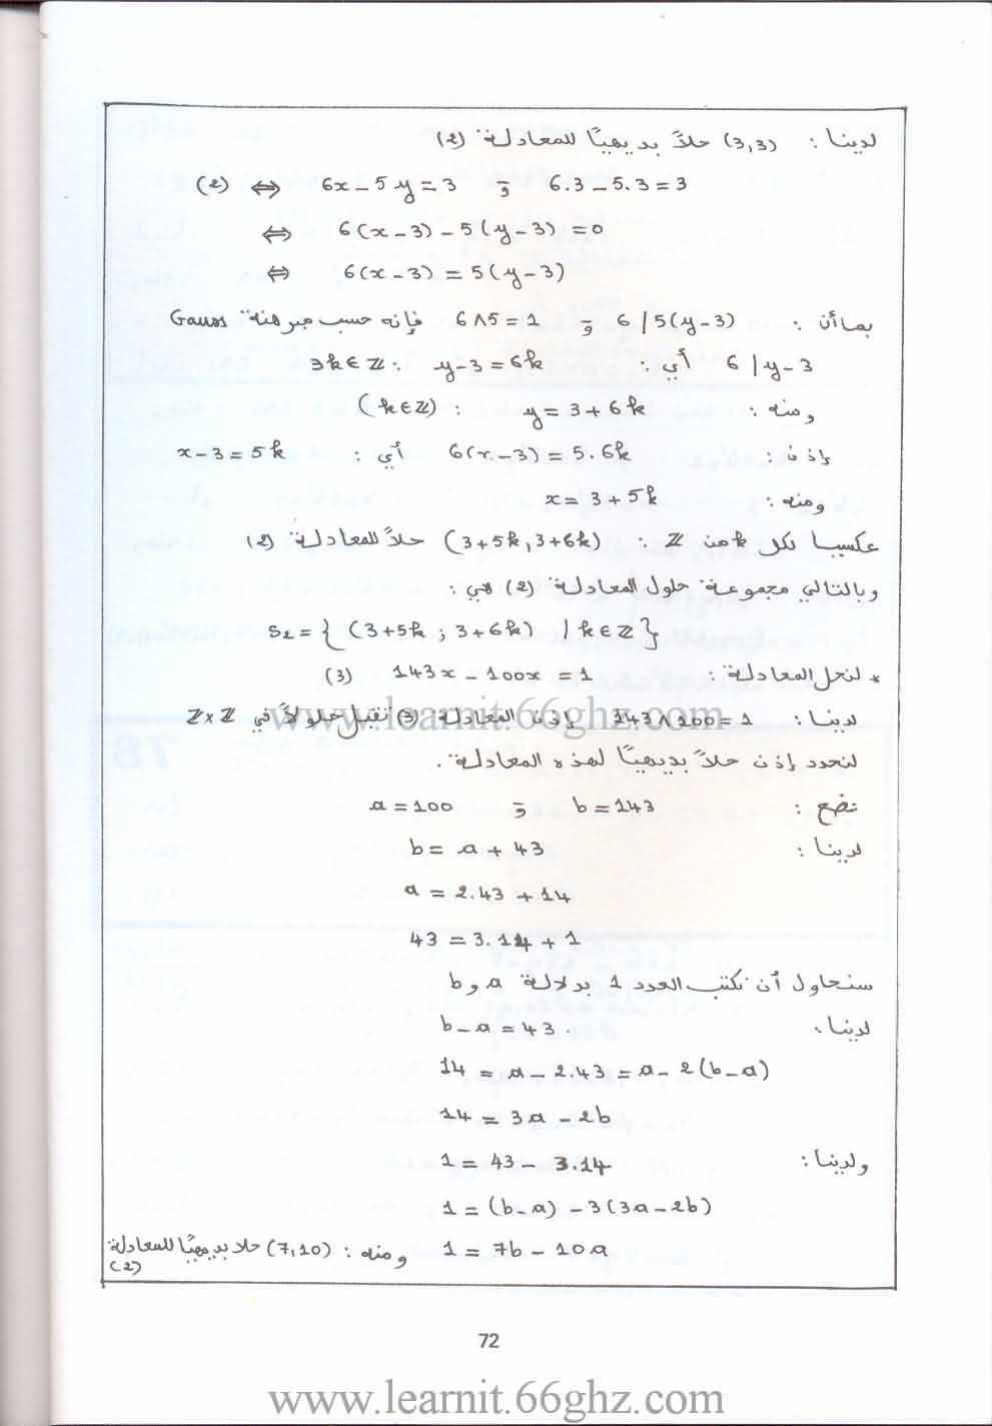 لدينا : (3,3) حلاً بديهيًا للمعادلة (2)
(2) ⇔ 6x - 5y = 3 و 6.3 - 5.3 = 3
⇔ 6(x-3) - 5(y-3) = 0
⇔ 6(x-3) = 5(y-3)
بما أن : 6 / 5(y-3) و 6∧5 = 1 فإنه حسب مبرهنة Gauss
6 / y-3 أي : ∃k∈ℤ : y-3 = 6k
ومنه : y = 3+6k : (k∈ℤ)
إذن : 6(x-3) = 5.6k أي : x-3 = 5k
ومنه : x = 3+5k
عكسيا لكل k من ℤ : (3+5k, 3+6k) حلاً للمعادلة (2)
وبالتالي مجموعة حلول المعادلة (2) هي :
S₂ = { (3+5k ; 3+6k) / k∈ℤ }
* لنحل المعادلة : 143x - 100x = 1 (3)
لدينا : 143∧100 = 1 إذن المعادلة (3) تقبل حلولاً في ℤ×ℤ
لنحدد إذن حلاً بديهيًا لهذه المعادلة .
نضع : b = 143 و a = 100
لدينا : b = a + 43
a = 2.43 + 14
43 = 3.14 + 1
سنحاول أن نكتب العدد 1 بدلالة a و b
لدينا . b - a = 43 .
14 = a - 2.43 = a - 2(b-a)
14 = 3a - 2b
ولدينا : 1 = 43 - 3.14
1 = (b-a) - 3(3a-2b)
1 = 7b - 10a ومنه : (7,10) حلا بديهيًا للمعادلة (2)
www.learnit.66ghz.com
72
www.learnit.66ghz.com